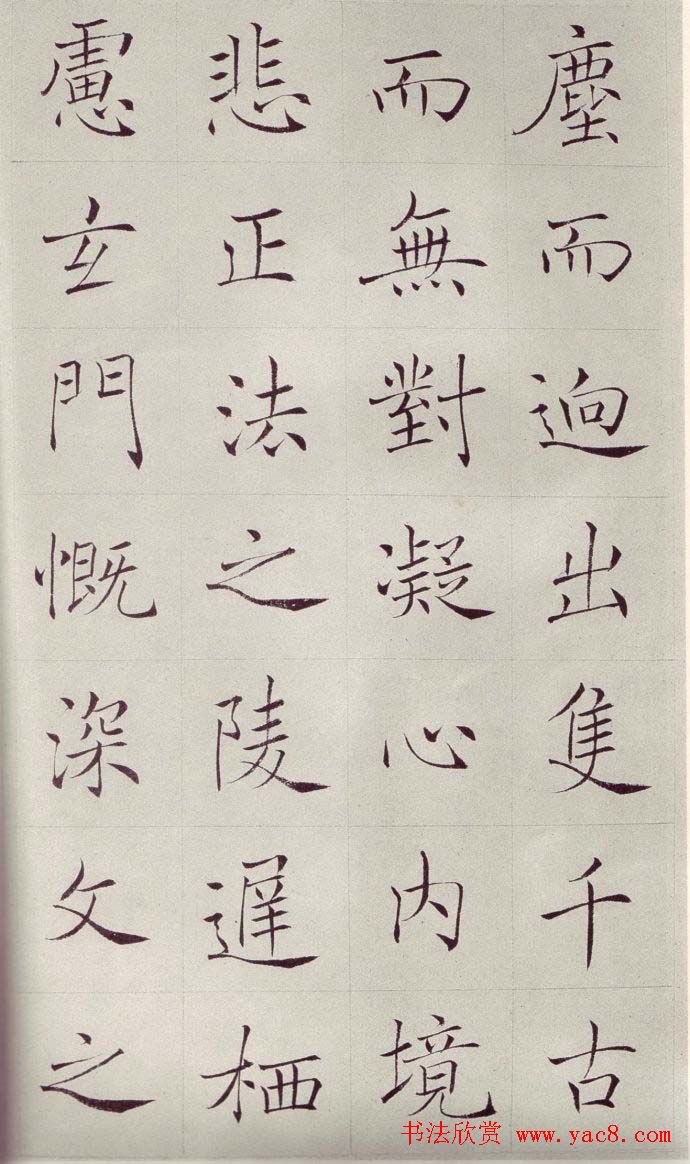 塵而迥出隻千古
而無對凝心內境
悲正法之陵遲栖
慮玄門慨深文之
书法欣赏 www.yac8.com